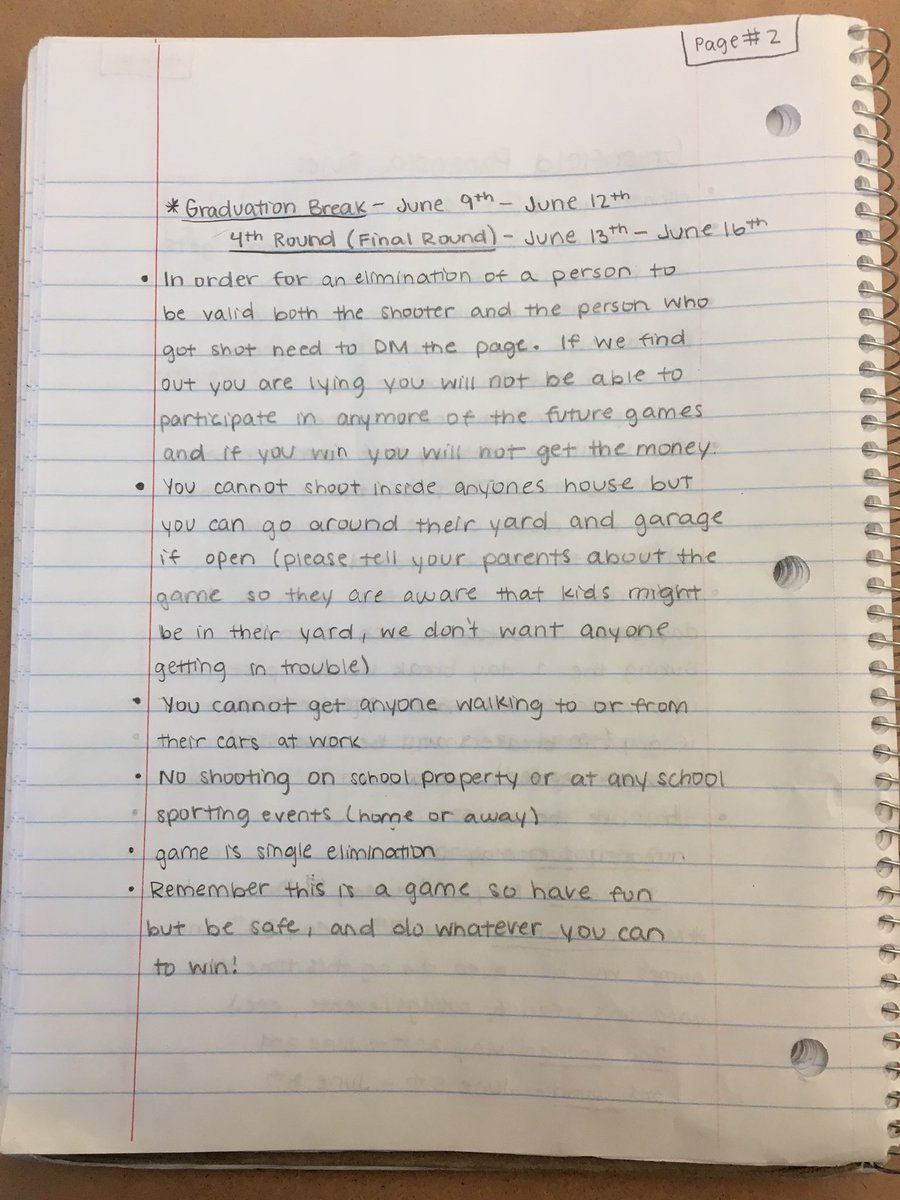 Page # 2
* Graduation Break - June 9th - June 12th
4th Round (Final Round) - June 13th - June 16th
• In order for an elimination of a person to
be valid both the shooter and the person who
got shot need to DM the page. If we find
out you are lying you will not be able to
participate in anymore of the future games
and if you win you will not get the money.
• You cannot shoot inside anyones house but
you can go around their yard and garage
if open (please tell your parents about the
game so they are aware that kids might
be in their yard, we don't want anyone
getting in trouble)
• You cannot get anyone walking to or from
their cars at work
• No shooting on school property or at any school
sporting events (home or away)
• game is single elimination
• Remember this is a game so have fun
but be safe, and do whatever you can
to win!